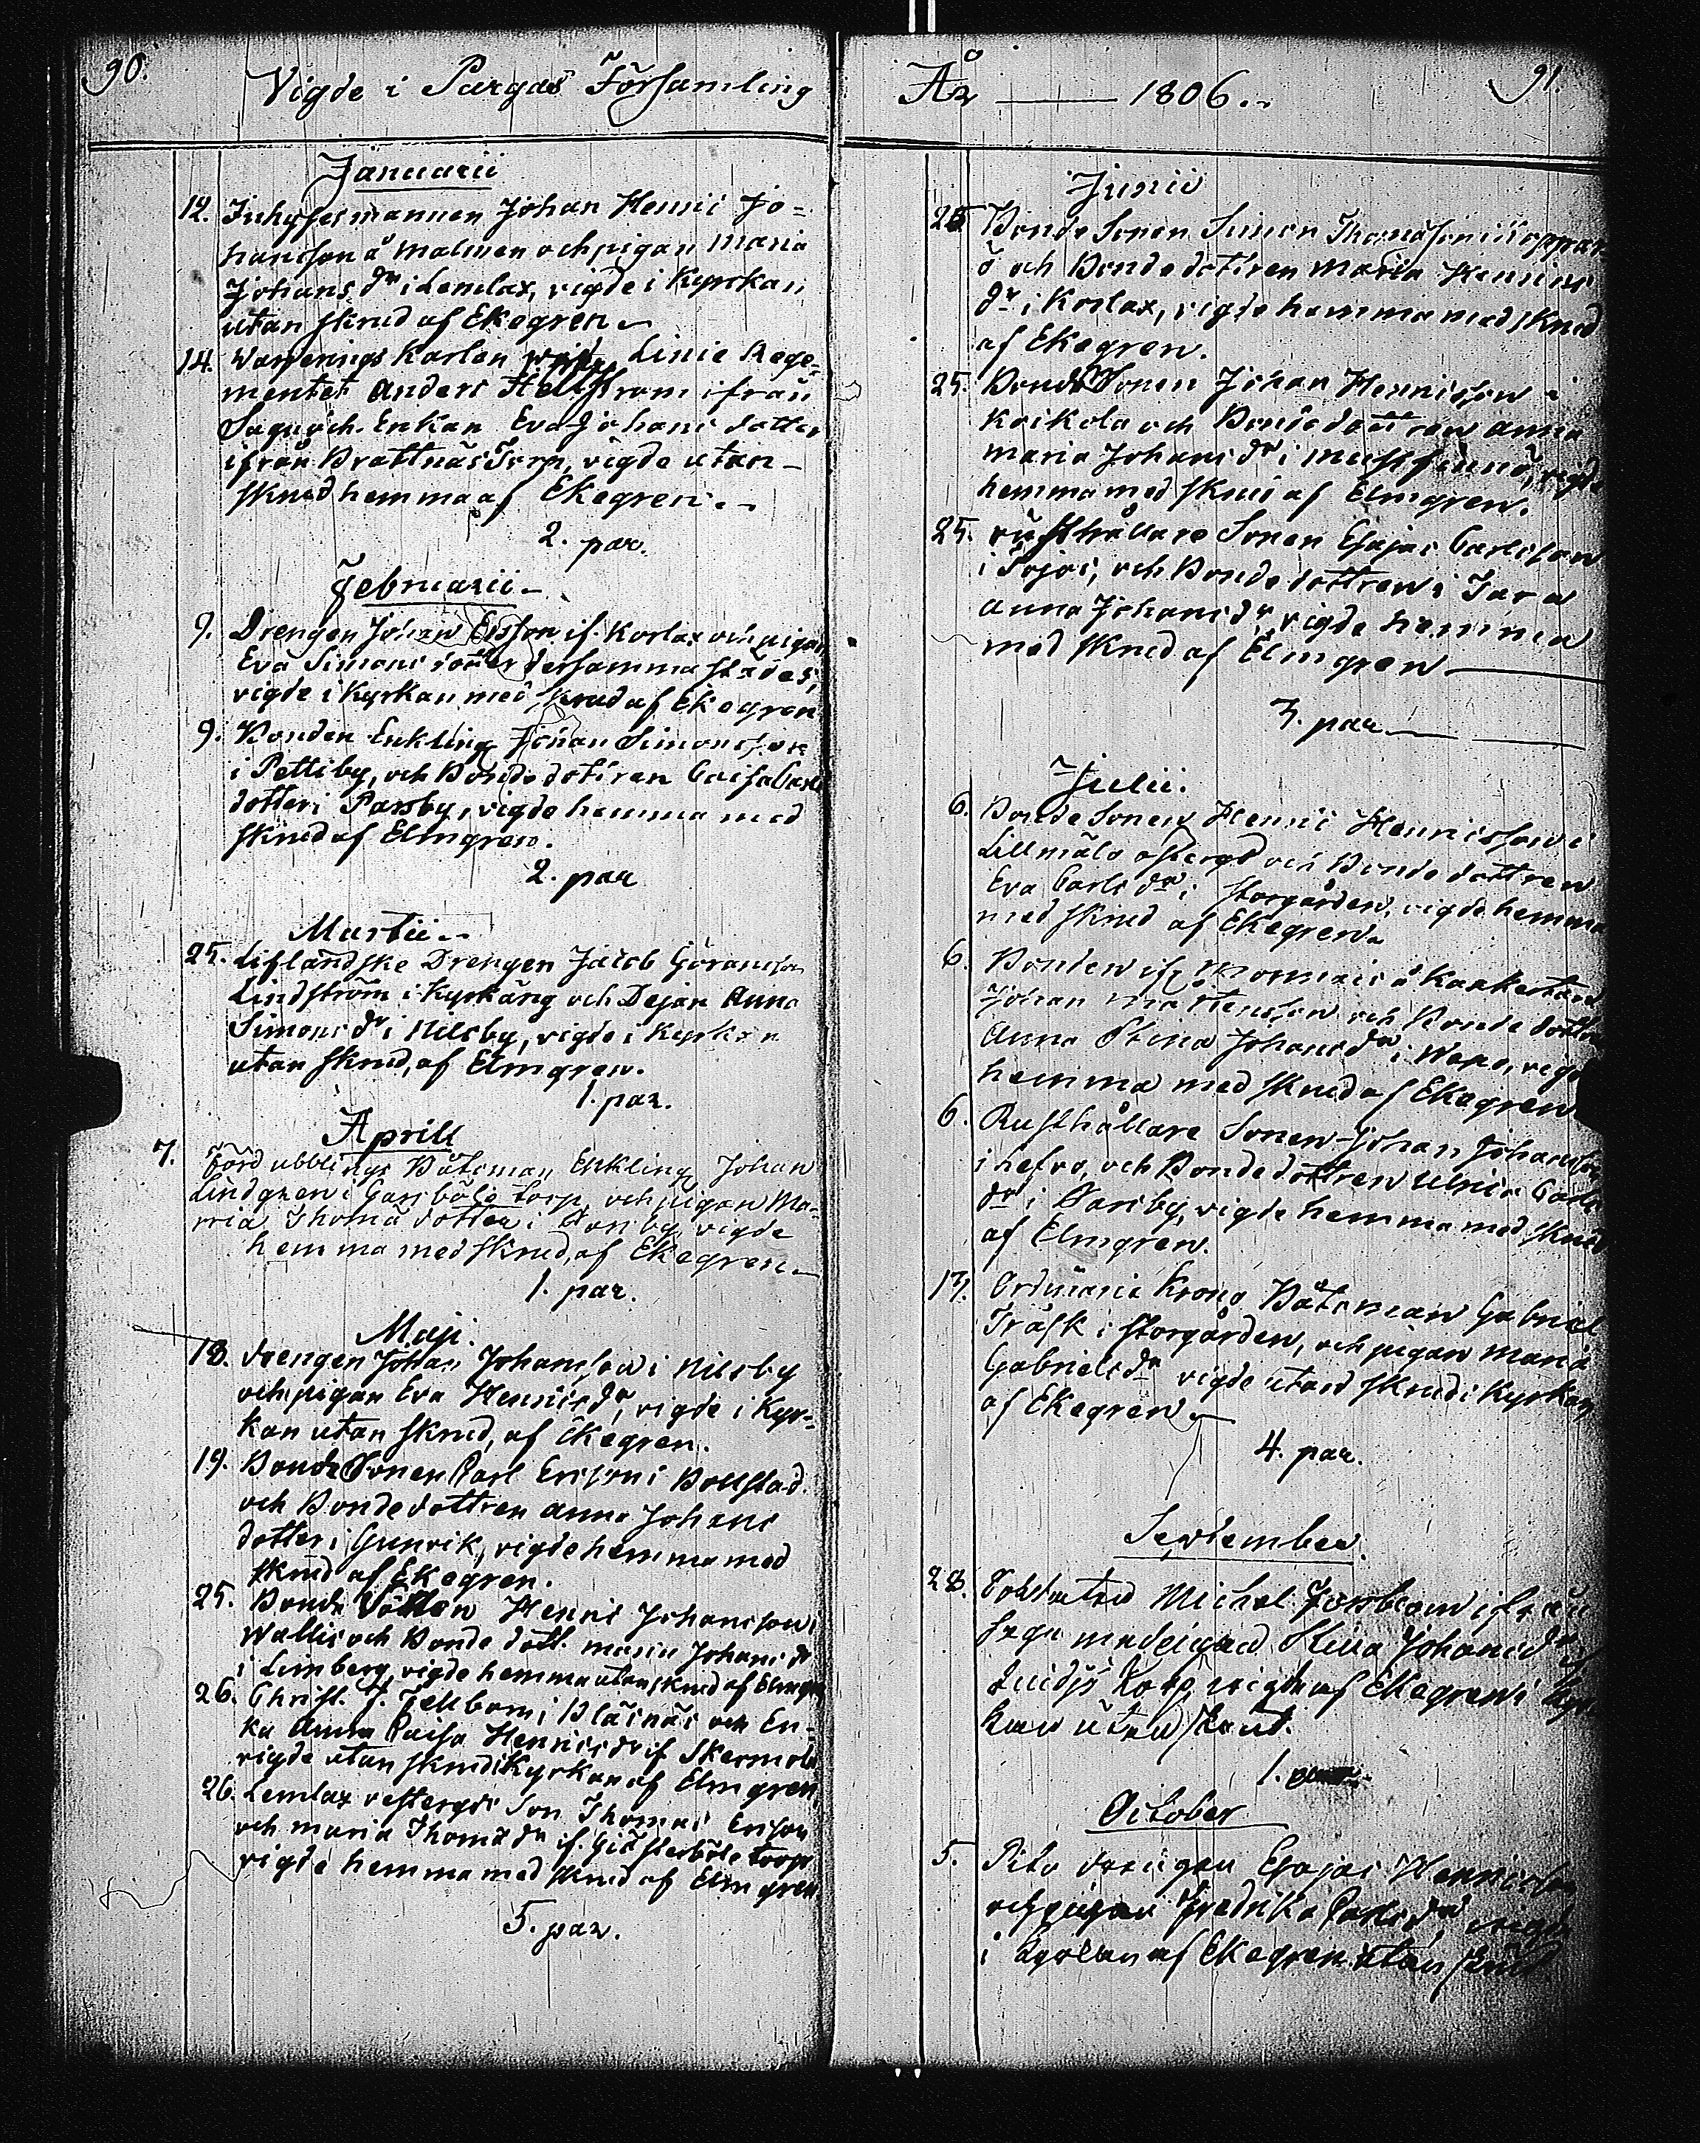 90.
Vigde i Pargas Församling
Januarii
12. Inhysesmannen Johan Henric Jo-
hansson å Malmen och pigan Maria
Johans dr i Lemlax, vigde i Kyrkan
utan skrud af Ekegren
14. Warfrings Karlen Linie Rege-
mentet Anders Hellstrom ifrån
Sagu och Enkan Eva Johans dotter
ifrån Brattnäs Torp, vigde utan
skrud hemma af Ekegren.
2. par.
Februarii
9. Drengen Johan Ersson if. Korlax och pigan
Eva Simons dotter dersamma städes,
vigde i Kyrkan med skrud af Ekegren
9. Bonden Enkling Johan Simonsson
i Pettiby, och Bondedottren Caisa Carls
dotter i Parsby, vigde hemma med
skrud af Elmgren.
2. par
Martii
25. Liflandske Drengen Jacob Göransson
Lindström i Kyrkäng och Dejan Anna
Simons dr i Nilsby, vigde i Kyrkan
utan skrud, af Elmgren.
1. par.
Aprill
7. Fördubblings Båtsman Enkling Johan
Lindgren i Garsböle torp, och pigan Ma-
ria Thomä dotter i vigde
hemma med skrud, af Ekegren
1. par.
Maji.
18. drengen Johan Johansson i Nilsby
och pigan Eva Henricsdr, vigde i Kyr-
kan utan skrud, af Ekegren.
19. Bonde Sonen Carl Ericson i Bollstad
och Bondedottren Anna Johans
dotter i Gunvik, vigde hemma med
skrud af Ekegren.
25. Bonde Henric Johansson i
Wallis och Bonde dott. Maria Johans dr
i Limberg, vigde hemma utan skrud af Elmgren
26. Christ. J. Fellbom i Bläsnäs och En-
ka Anna Caisa Henricsdr if Skermola
vigde utan skrud i Kyrkan af Elmgren,
26. Lemlax vestergds Son Thomas Ericson
och Maria Thomä dr if. Gästerböle torp
vigde hemma med skrud af Elmgren
5. par.
År 1806.
91.
Junii
25 Bonde Sonen Simon Thomasson i
ö och Bondedottren Maria Henrics
dr i Korlax, vigde hemma med skrud
af Ekegren.
25. Bonde Sonen Johan Henricsson i
Koikola och Bondedottren Anna
Maria Johans dr i Mustfinnö, vigde
hemma med skrud af Elmgren.
25. rusthållare Sonen Esajas Carlsson
i Sojos, och Bonde dottren i Tara
Anna Johans dr vigde hemma
med skrud af Elmgren
3. par
Julii.
6. Bonde Sonen Henric Henricsson i
Lillmälo östergd och Bonde dottren
Eva Carls dr i Storgården, vigde hemma
med skrud af Ekegren
6. Bonden if å
Johan Mårtensson och Bonde dottren
Anna Stina Johans dr i Wapo, vigde
hemma med skrud af Ekegren
6. Rusthållare Sonen Johan Johansson
i och Bondedottren Ulrica Carls
dr i Darsby, vigde hemma med skrud
af Elmgren.
13. Ordinarie Krono Båtsman Gabriel
Träsk i Storgården, och pigan Maria
Gabriels dr vigde utan skrud i Kyrkan
af Ekegren
4. par.
September
28. Soldaten Michel ifrån
Sagu med pigan Stina Johans dr
Torp, vigde af Ekegren i Kyr
kan utan skrud.
1.
October
5. drengen Esajas Henricsson
och pigan Fredrika Carls dr vigde
i Kyrkan af Ekegren utan skrud.